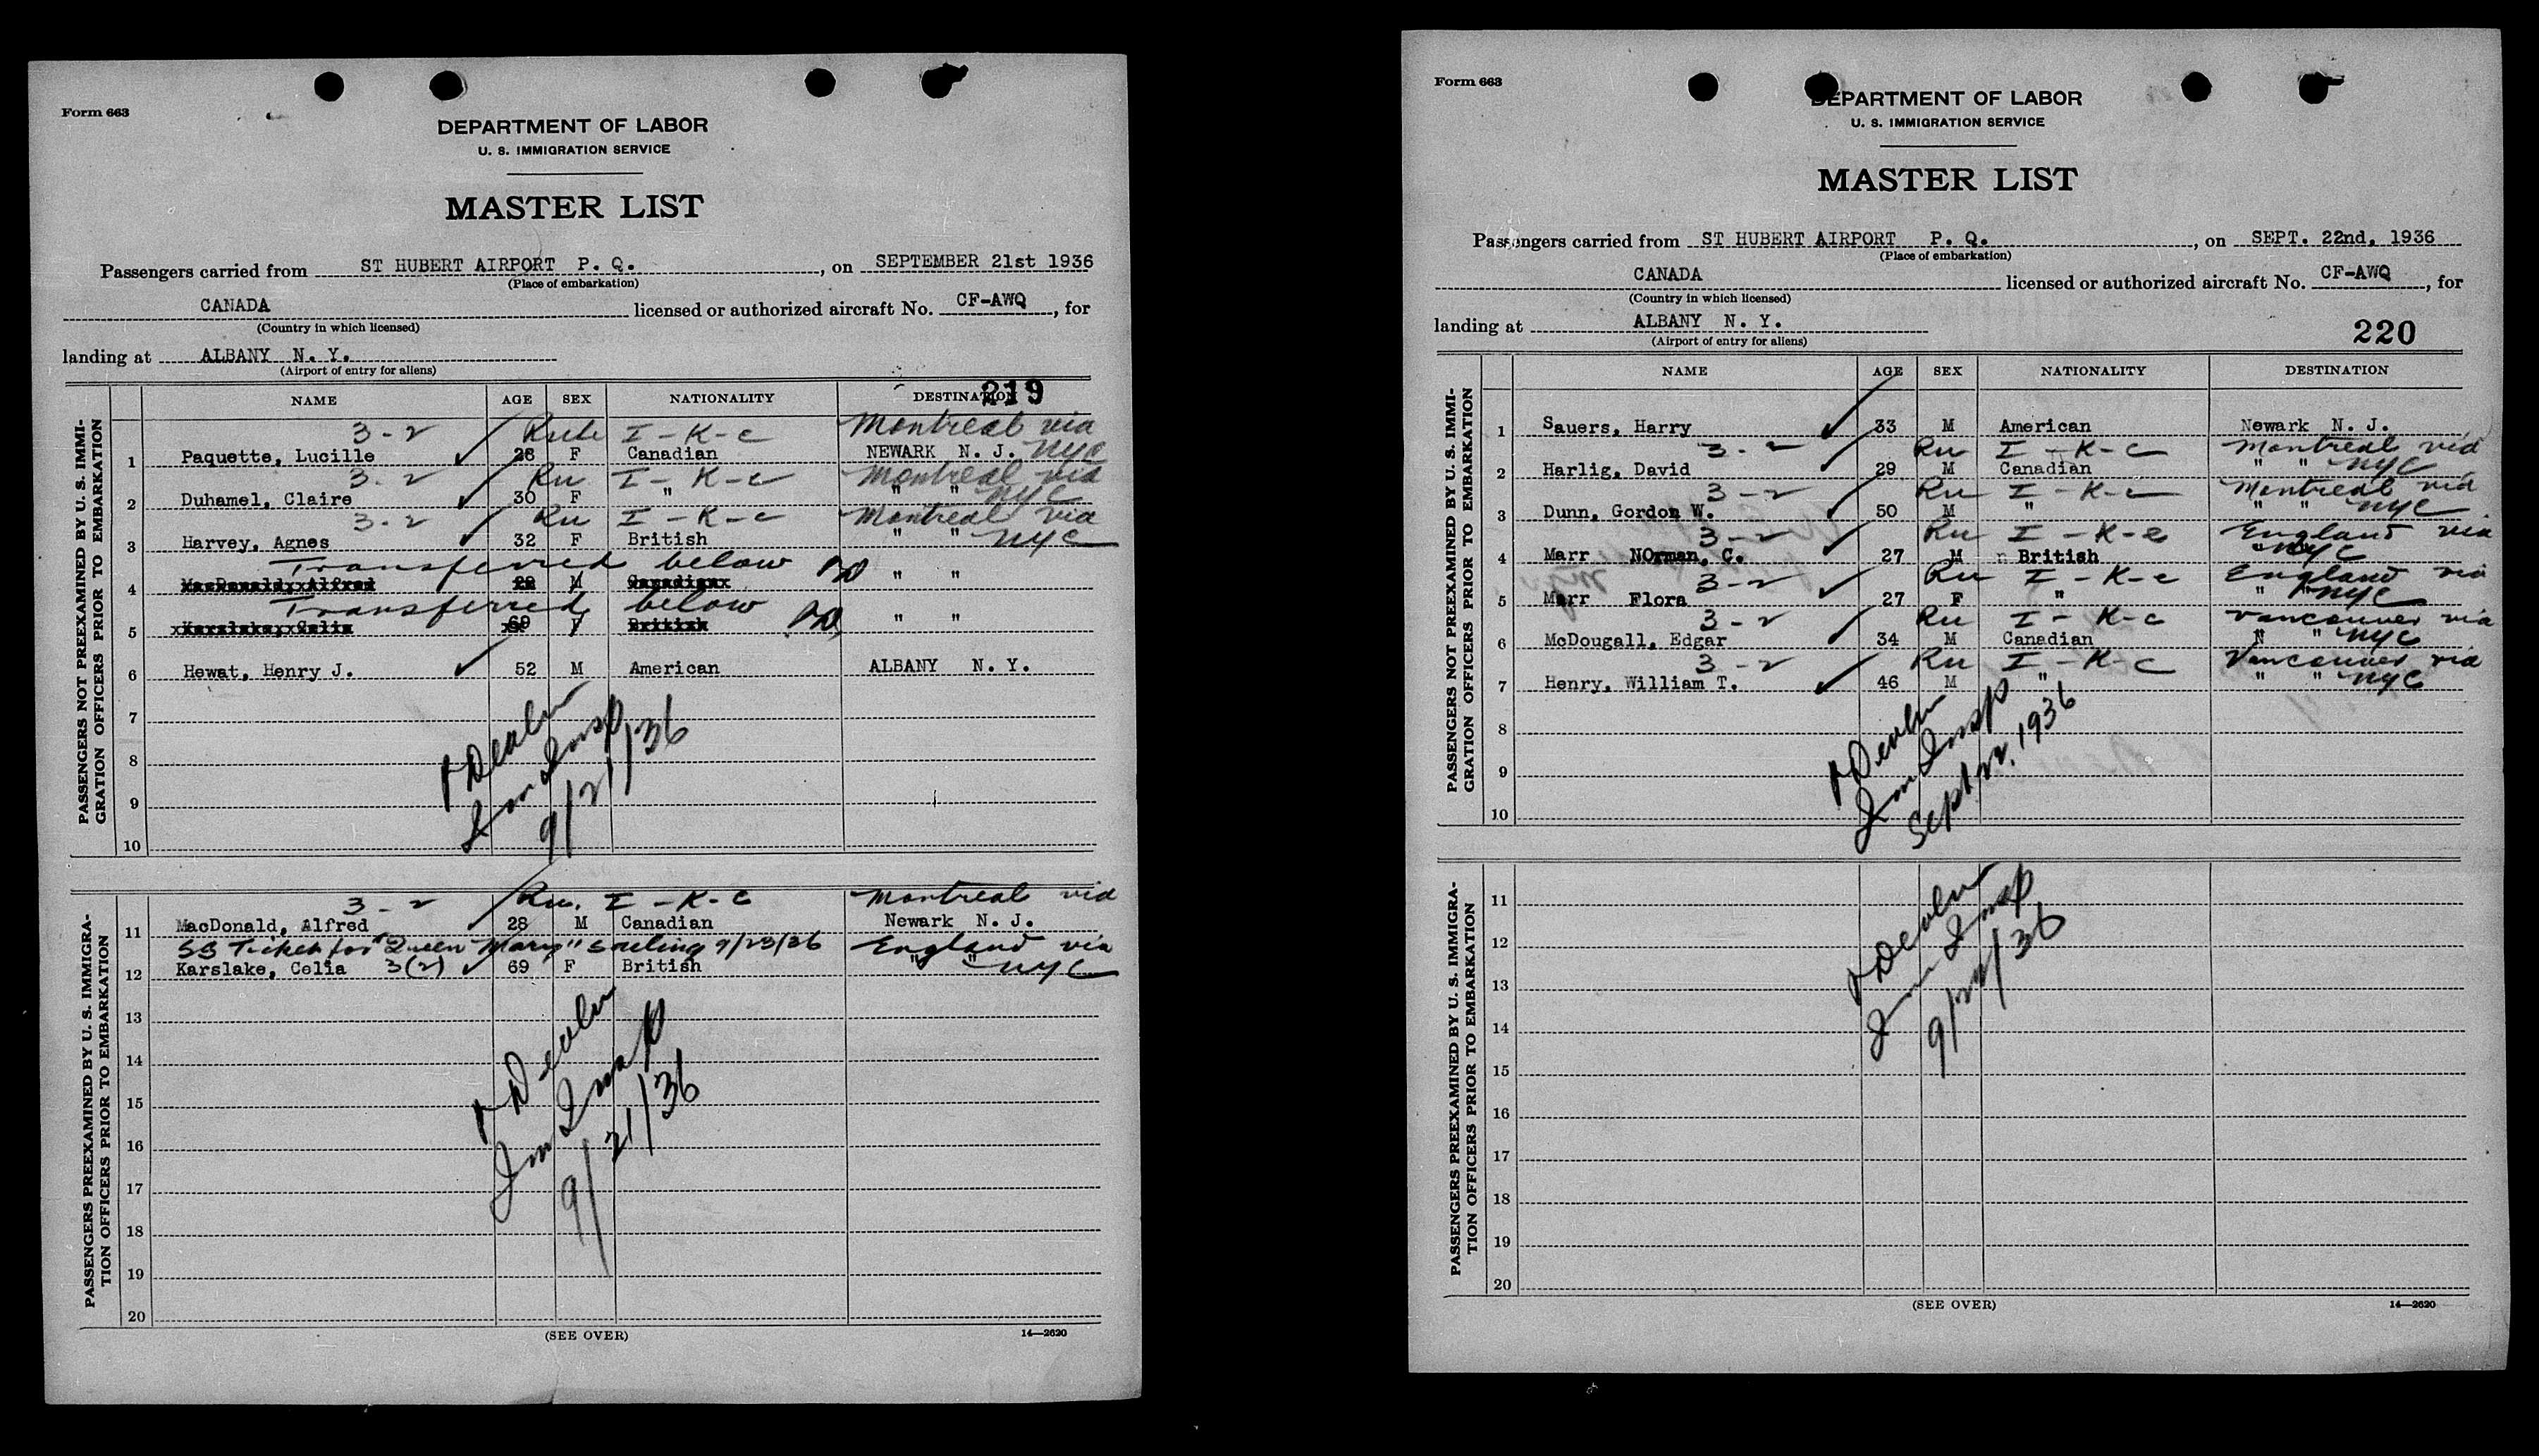 Form 663
DEPARTMENT OF LABOR
U. S. IMMIGRATION SERVICE
MASTER LIST
Passengers carried from ST HUBERT AIRPORT P. Q., on SEPTEMBER 21st 1936
(Place of embarkation)
CANADA licensed or authorized aircraft No. CF-AWQ, for
(Country in which licensed)
landing at ALBANY N. Y.
(Airport of entry for aliens)
219
NAME AGE SEX NATIONALITY DESTINATION
PASSENGERS NOT PREEXAMINED BY U. S. IMMI-
GRATION OFFICERS PRIOR TO EMBARKATION
3-2 I-K-C Montreal via
1 Paquette, Lucille 28 F Canadian NEWARK N. J. NYC
3-2 Ru I-K-C Montreal via
2 Duhamel, Claire 30 F " " " NYC
3-2 Ru I-K-C Montreal via
3 Harvey, Agnes 32 F British " " NYC
Transferred below
4 MacDonald, Alfred 28 M Canadian " "
Transferred below
5 Karslake, Celia 69 F British " "
6 Hewat, Henry J. 52 M American ALBANY N. Y.
7
8
9
10
Devlin
Imm Insp
9/21/36
PASSENGERS PREEXAMINED BY U. S. IMMIGRA-
TION OFFICERS PRIOR TO EMBARKATION
3-2 Ru. I-K-C Montreal via
11 MacDonald, Alfred 28 M Canadian Newark N. J.
SS Ticket for "Queen Mary" sailing 9/23/36 England via
12 Karslake, Celia 3(2) 69 F British " " NYC
13
14
15
16
17
18
19
20
Devlin
Imm Insp
9/21/36
(SEE OVER)
14—2620
Form 663
DEPARTMENT OF LABOR
U. S. IMMIGRATION SERVICE
MASTER LIST
Passengers carried from ST HUBERT AIRPORT P. Q., on SEPT. 22nd, 1936
(Place of embarkation)
CANADA licensed or authorized aircraft No. CF-AWQ, for
(Country in which licensed)
landing at ALBANY N. Y.
(Airport of entry for aliens)
220
NAME AGE SEX NATIONALITY DESTINATION
PASSENGERS NOT PREEXAMINED BY U. S. IMMI-
GRATION OFFICERS PRIOR TO EMBARKATION
1 Sauers, Harry 33 M American Newark N. J.
3-2 Ru I-K-C Montreal via
2 Harlig, David 29 M Canadian " " NYC
3-2 Ru I-K-C Montreal via
3 Dunn, Gordon W. 50 M " " " NYC
3-2 Ru I-K-C England via
4 Marr NOrman, C. 27 M British NYC
3-2 Ru I-K-C England via
5 Marr Flora 27 F " " " NYC
3-2 Ru I-K-C Vancouver via
6 McDougall, Edgar 34 M Canadian " " NYC
3-2 Ru I-K-C Vancouver via
7 Henry, William T. 46 M " " " NYC
8
9
10
Devlin
Imm Insp
Sept 22, 1936
PASSENGERS PREEXAMINED BY U. S. IMMIGRA-
TION OFFICERS PRIOR TO EMBARKATION
11
12
13
14
15
16
17
18
19
20
Devlin
Imm Insp
9/22/36
(SEE OVER)
14—2620